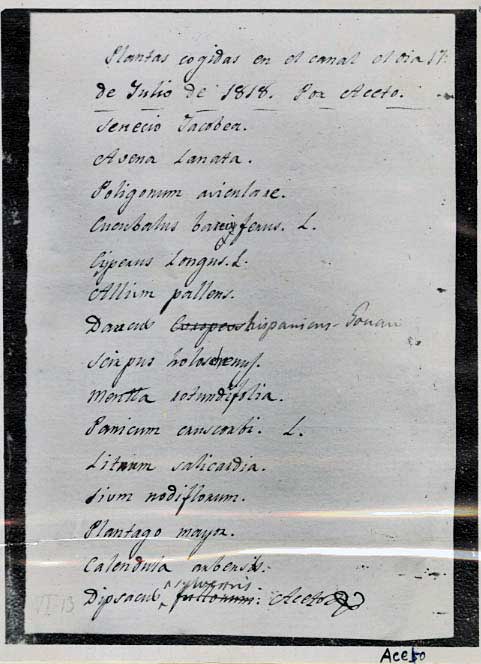 Plantas cogidas en el canal el dia 17
de Julio de 1818. Por Aceto.
Senecio Jacobea.
Avena Lanata.
Poligonum aviculare.
Cucubalus baciferus. L.
Cyperus Longus. L.
Allium pallens.
Daucus hispanicus Gouan
Scirpus holoschenus.
Mentha rotundifolia.
Panicum cruscorbi. L.
Litrum salicardia.
Sium nodiflorum.
Plantago mayor.
Calendula arbensis.
sylvestris
Dipsacus fullonum: Aceto
VI-13
Aceto